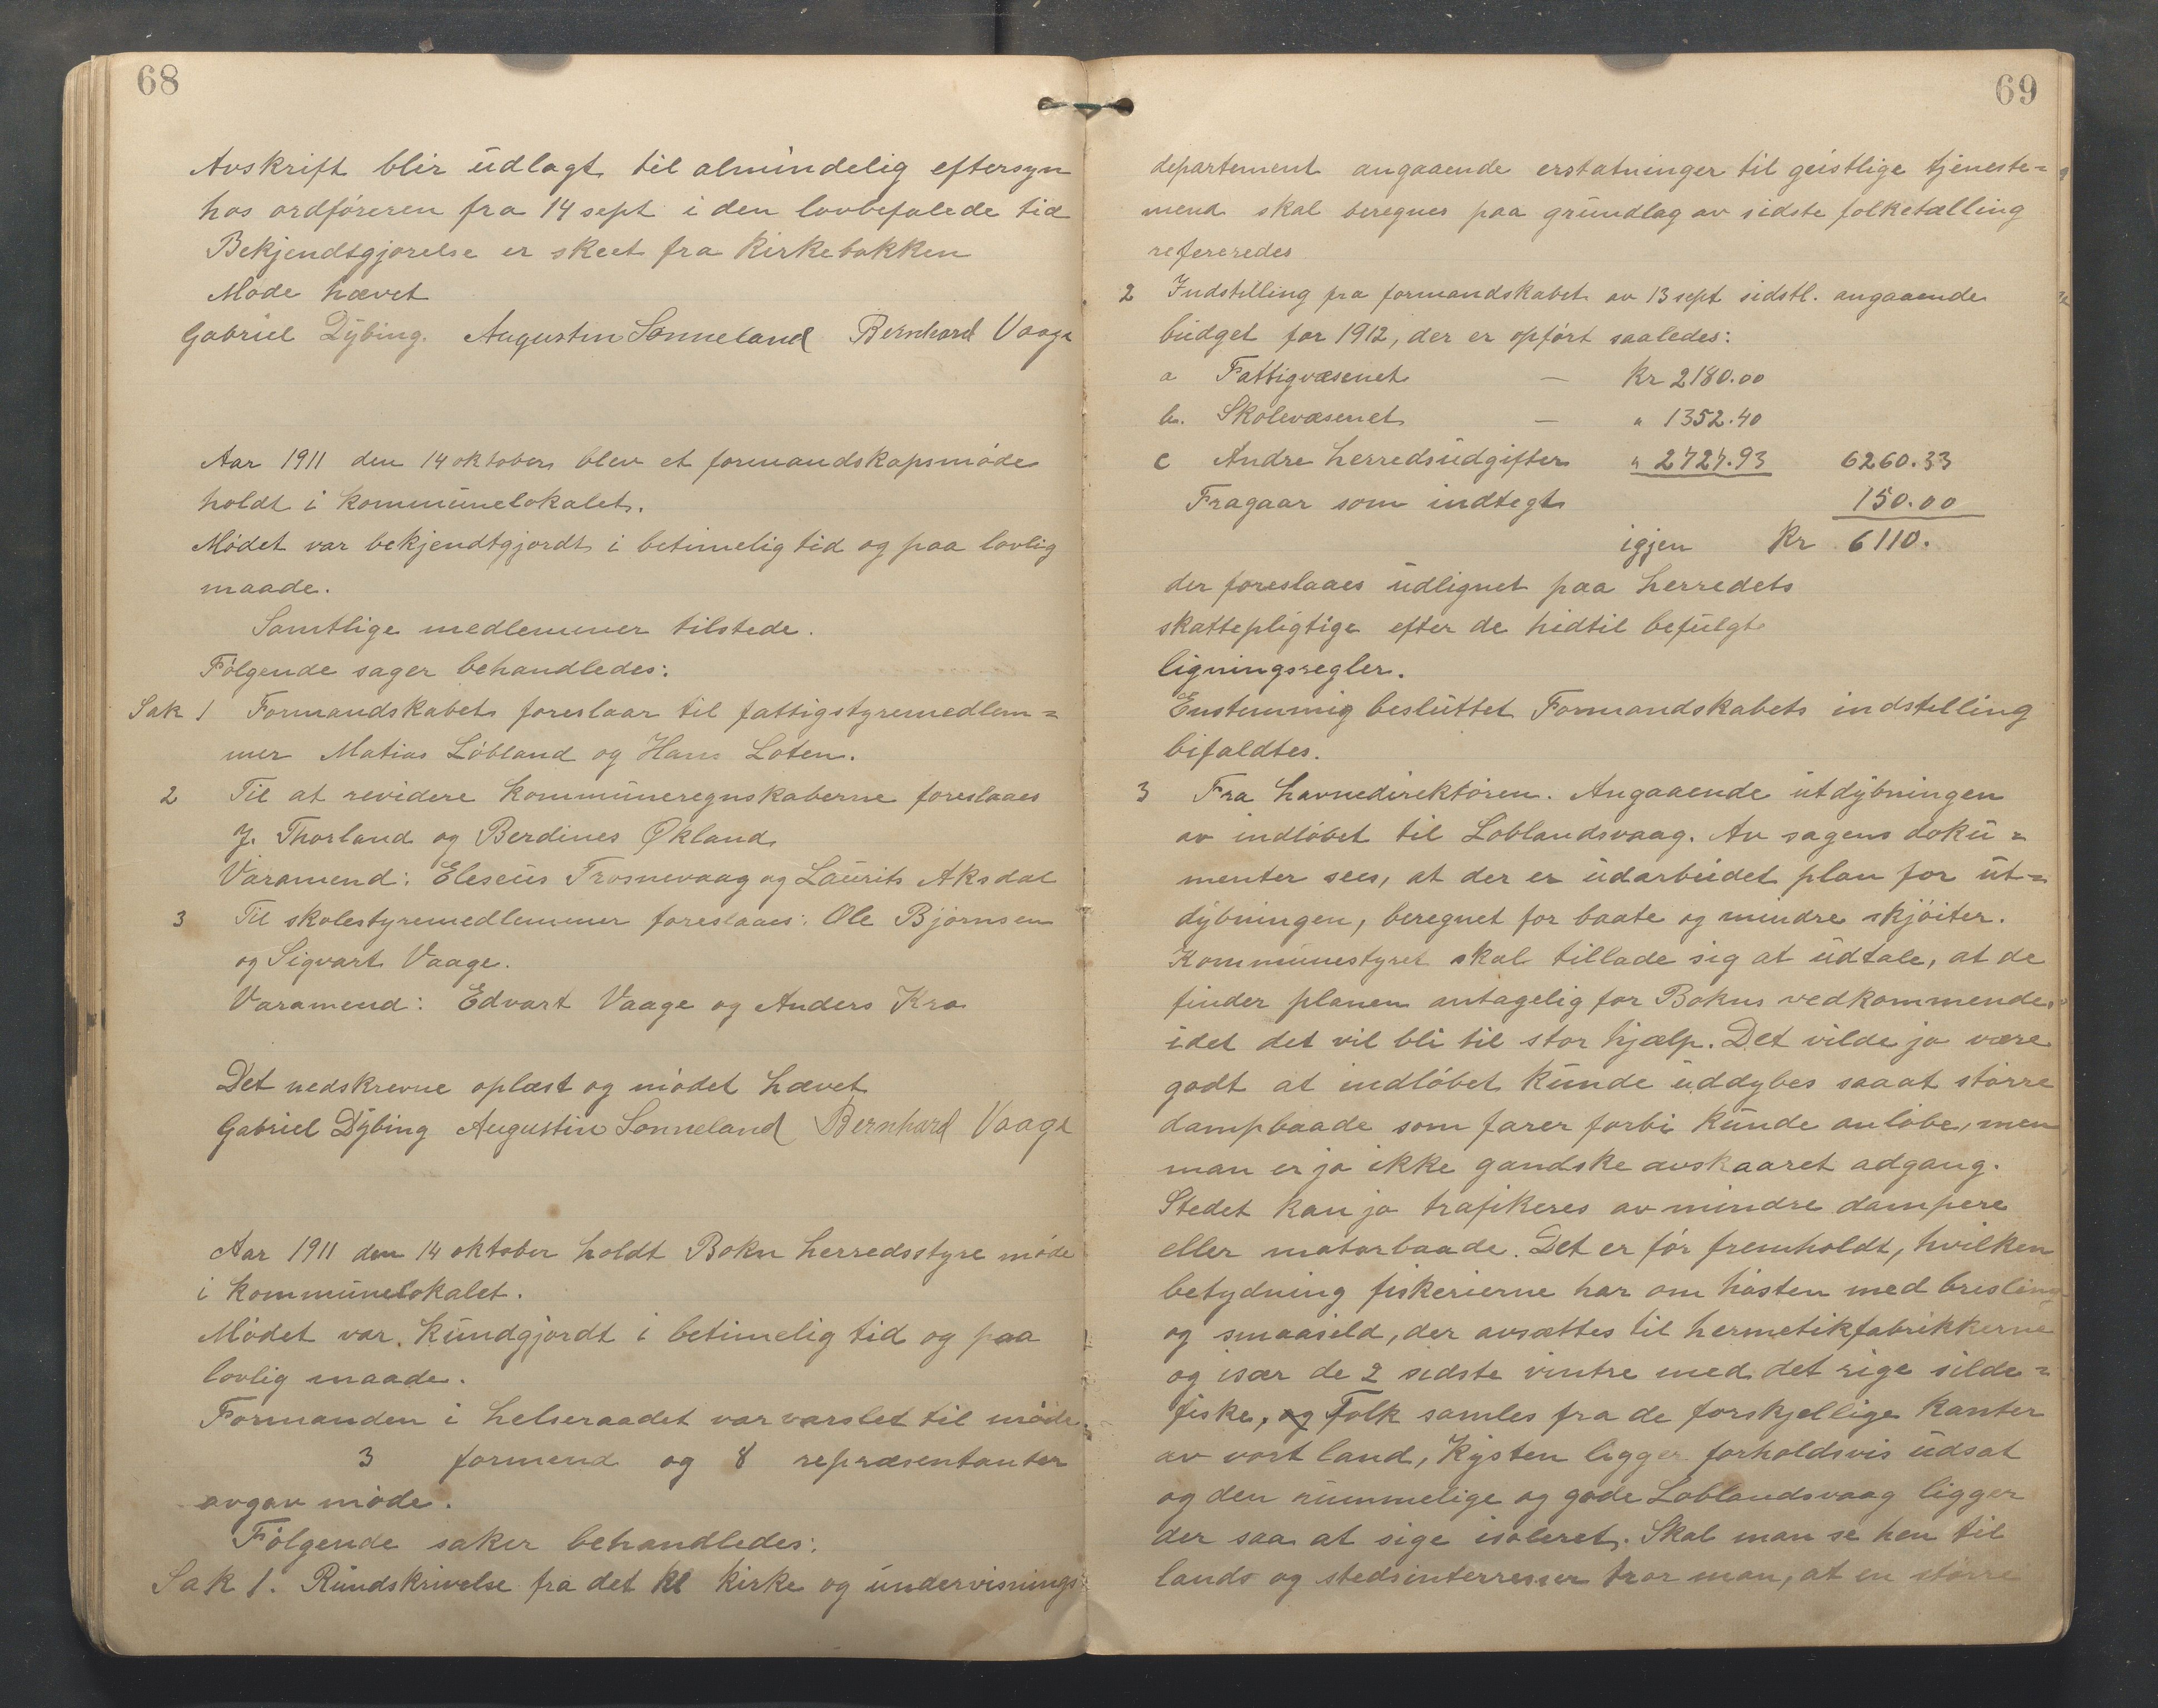 68
Avskrift blir údlagt til almindelig eftersyn
hos ordföreren fra 14 sept i den lovbefalede tid
Bekjendtgjorelse er skeet fra Kirkebakken
Möde hævet
Gabriel Dÿbing. Augustin Sönneland Bernhard Vaage
Aar 1911 den 14 oktober blev et formandskapsmöde
holdt i kommúnelokalet.
Mödet var bekjendtgjordt i betimelig tid og paa lovlig
maade.
Samtlige medlemmer tilstede.
Fölgende sager behandledes:
Sak 1 Formandskabet foreslaar til fattigstyremedlem=
mer Matias Löbland og Hans Loten.
2 Til at revidere kommúneregnskaberne foreslaaes
J. Thorland og Berdines Økland
Varamend: Eleseús Trosnevaag og Laúrits Aksdal
3 Til skolestyremedlemmer foreslaaes: Ole Björnsen
og Sigvart Vaage.
Varamend: Edvart Vaage og Anders Kro
Det nedskrevne oplæst og mödet hævet
Gabriel Dÿbing Augustin Sönneland Bernhard Vaage
Aar 1911 den 14 oktober holdt Bokn herredsstyre möde
i kommúnelokalet.
Mödet var kúndgjordt i betimelig tid og paa
lovlig maade.
Formanden i helseraadet var varslet til möde.
3 formend og 8 repræsentanter
avgav möde.
Fölgende saker behandledes:
Sak 1. Rúndskrivelse fra det kl kirke og úndervisnings
69
departement angaaende erstatninger til geistlige tjeneste=
mend skal beregnes paa grúndlag av sidste folketælling
refereredes
2 Indstilling fra formandskabet av 13 sept sidstl. angaaende
búdget for 1912, der er opfört saaledes:
a Fattigvæsenet — Kr 2180.00
b. Skolevæsenet — " 1352.40
c Andre herredsúdgifter " 2727.93 6260.33
Fragaar som indtegt 150.00
igjen Kr 6110.
der foreslaaes údlignet paa herredets
skattepligtige efter de hidtil befúlgt
ligningsregler.
Enstemmig beslúttet Formandskabets indstelling
bifaldtes.
3 Fra havnedirektören. Angaaende útdÿbningen
av indlöbet til Loblandsvaag. Av sagens dokú=
menter sees, at der er údarbeidet plan for út=
dÿbningen, beregnet for baate og mindre skjöiter.
Kommúnestyret skal tillade sig at údtale, at de
finder planen antagelig for Bokns vedkommende.
idet det vil bli til stor hjælp. Det vilde jo være
godt at indlöbet kúnde úddybes saaat större
dampbaade som farer forbi kúnde anlöbe, men
man er jo ikke gandske avskaaret adgang.
Stedet kan jo trafikeres av mindre dampere
eller motorbaade. Det er för fremholdt, hvilken
betydning fiskerierne har om hösten med brisling
og smaasild, der avsættes til hermetikfabrikkerne
og især de 2 sidste vintre med det rige silde=
fiske, og Folk samles fra de forskjellige kanter
av vort land, Kÿsten ligger forholdsvis údsat
og den rúmmelige og gode Loblandsvaag ligger
der saa at sige isoleret. Skal man se hen til
lands og stedsinterresser tror man, at en större